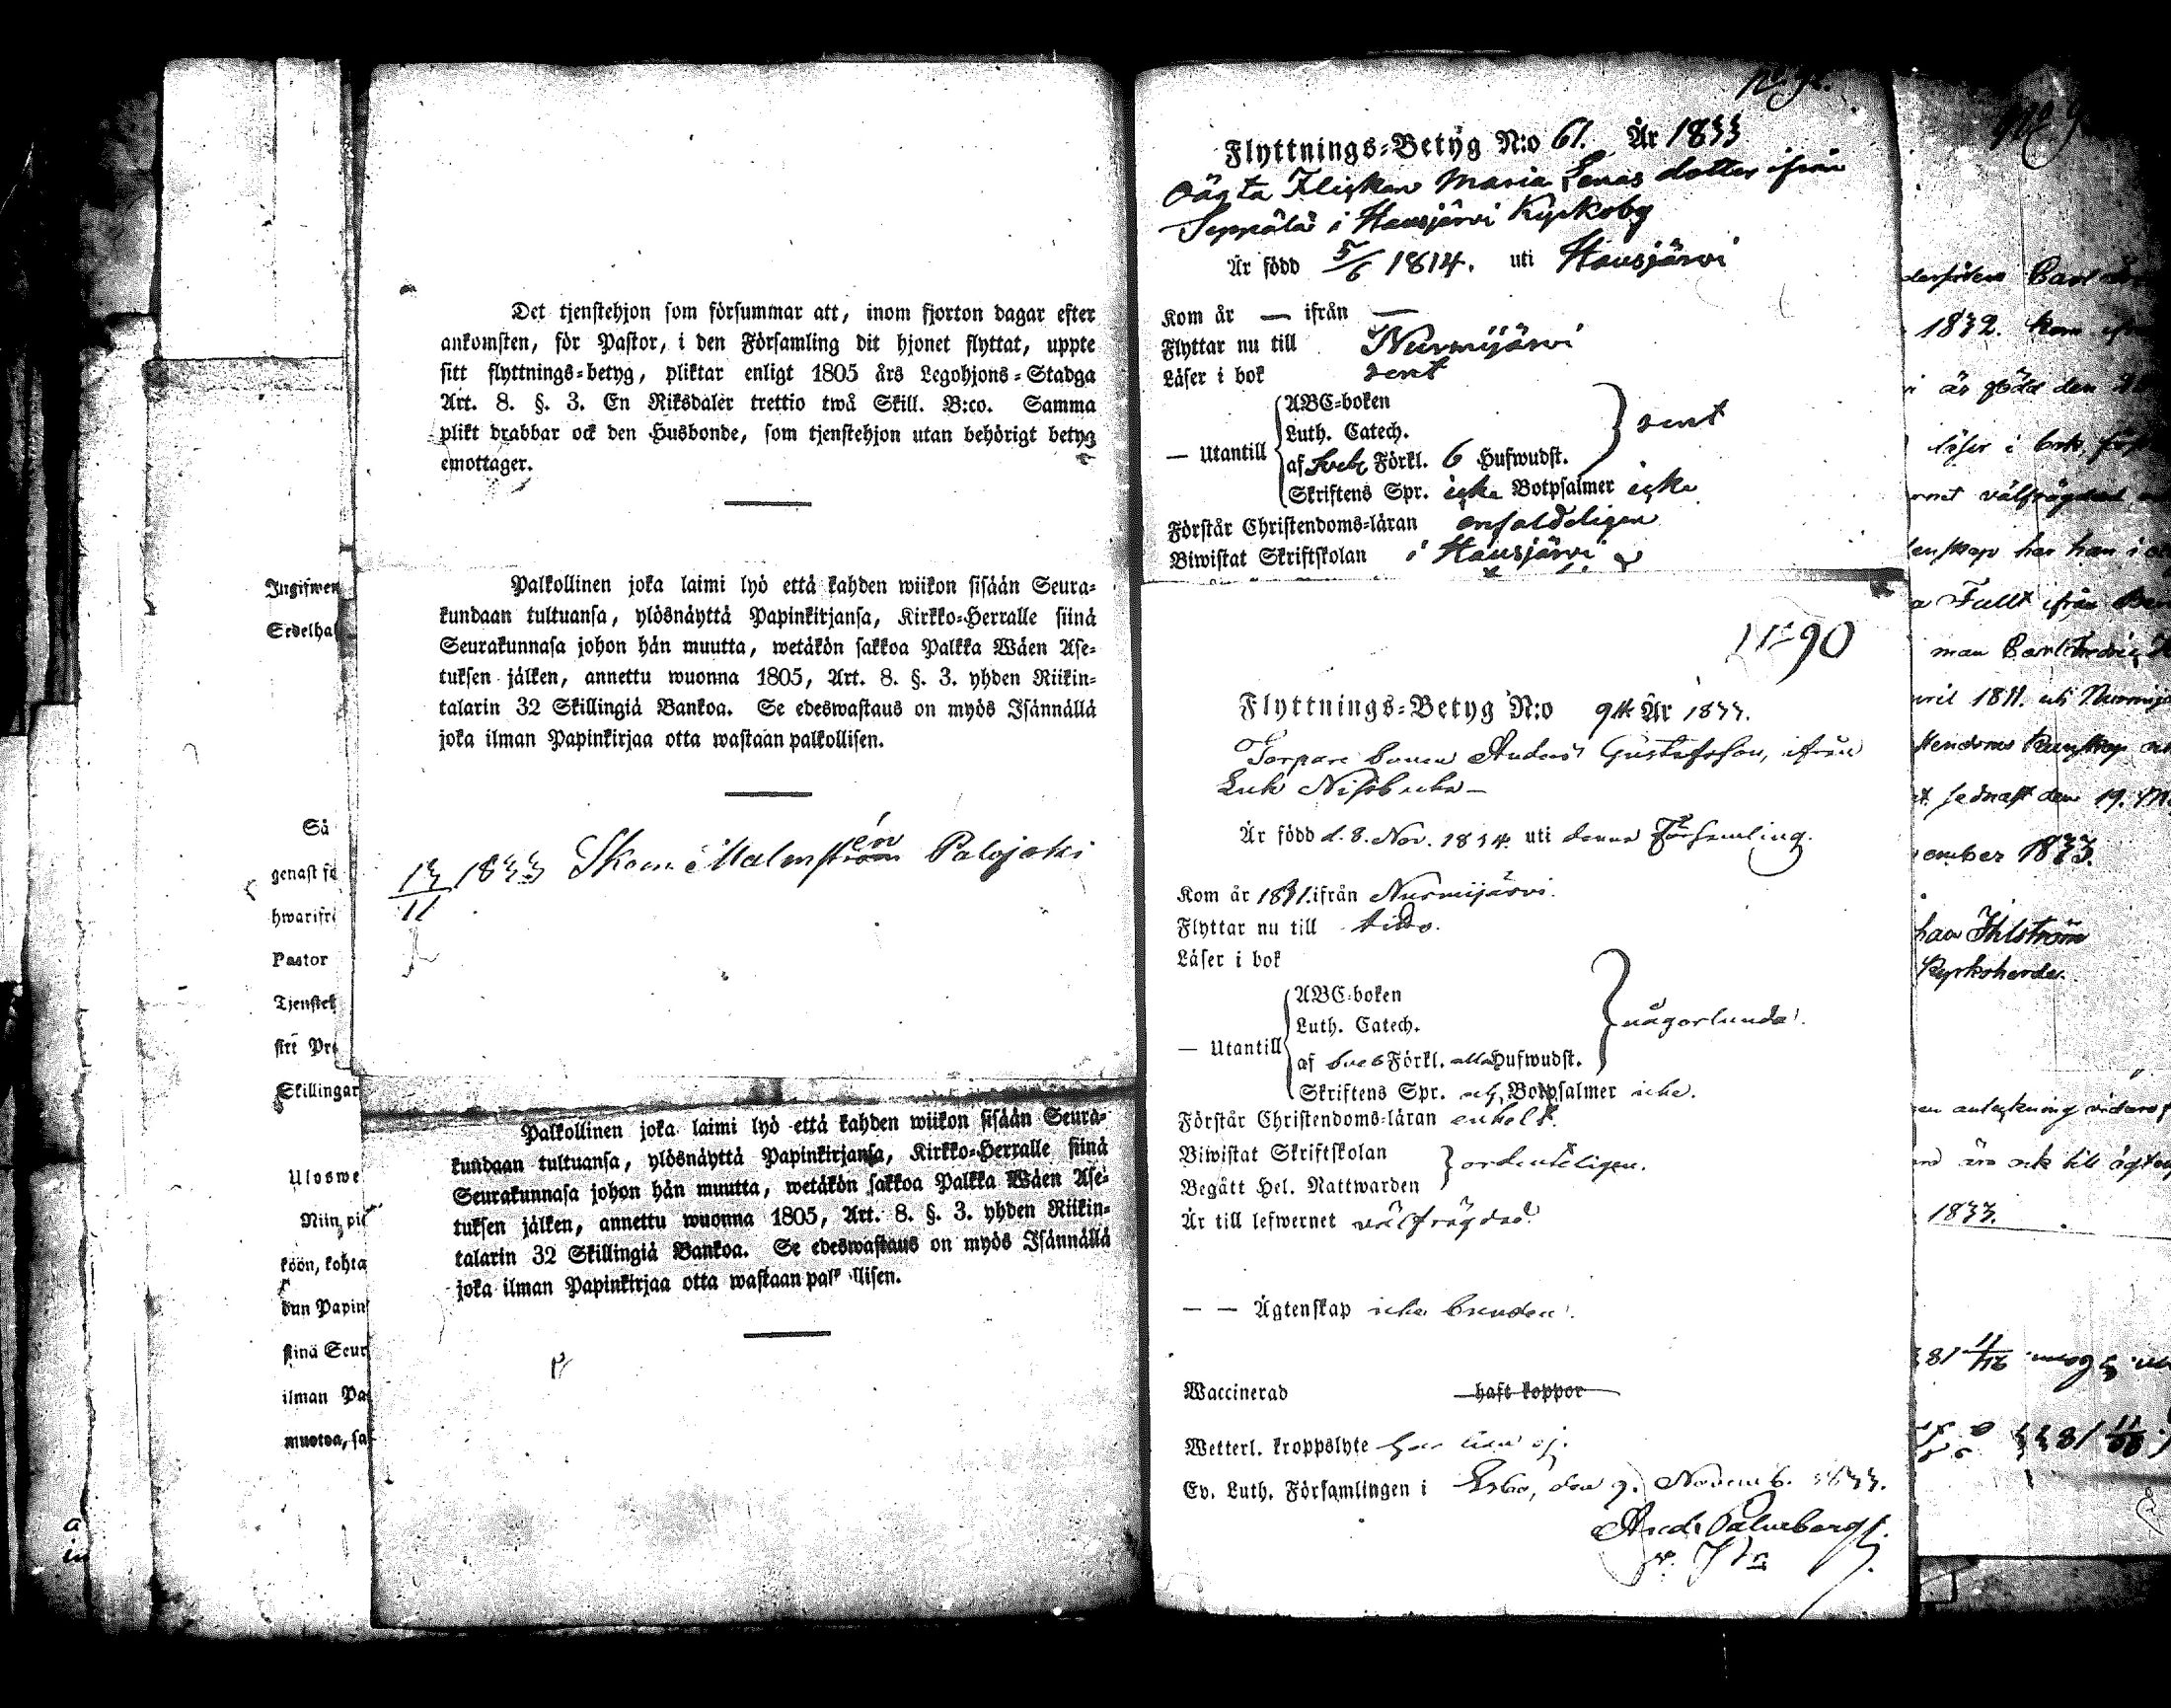 Det tjenstehjon som försummar att, inom fjorton dagar efter
ankomsten, för Pastor, i den Församling dit hjonet flyttat, uppte
sitt flyttnings-betyg, pliktar enligt 1805 års Legohjons-Stadga
Art. 8. §. 3. En Riksdaler trettio twå Skill. B:co. Samma
plikt drabbar ock den Husbonde, som tjenstehjon utan behörigt betyg
emottager.
Palkollinen joka laimi lyö että kahden wiikon sisään Seura-
kundaan tultuansa, ylösnäyttä Papinkirjansa, Kirkko-Herralle siinä
Seurakunnasa johon hän muutta, wetäkön sakkoa Palkka Wäen Ase-
tuksen jälken, annettu wuonna 1805, Art. 8. §. 3. yhden Riikin-
talarin 32 Skillingiä Bankoa. Se edeswastaus on myös Isännällä
joka ilman Papinkirjaa otta wastaan palkollisen.
13/11 1833 Skom. Malmström én Palojoki
Palkollinen joka laimi lyö että kahden wiikon sisään Seura-
kundaan tultuansa, ylösnäyttä Papinkirjansa, Kirkko-Herralle siinä
Seurakunnasa johon hän muutta, wetäkön sakkoa Palkka Wäen Ase-
tuksen jälken, annettu wuonna 1805, Art. 8. §. 3. yhden Riikin-
talarin 32 Skillingiä Bankoa. Se edeswastaus on myös Isännällä
joka ilman Papinkirjaa otta wastaan palkollisen.
Sedelha
Så
genast
hwarifr
Pastor
Tjenste
sitt Pr
Skillingar
Uloswe
Niin pi
köön, kohta
dun Papin
siinä Seur
ilman Pa
muotoa, sa
Flyttnings-Betyg N:o 61. År 1833
Oägta Flickan Maria Lenas dotter ifrån
Seppälä i Hausjärvi Kyrkoby
Är född 5/6 1814. uti Hausjärvi
Kom år — ifrån —
Flyttar nu till Nurmijärvi
Läser i bok rent
ABC-boken
Luth. Catech.
— Utantill af Sveb. Förkl. 6 Hufwudst. rent
Skriftens Spr. icke Botpsalmer icke
Förstår Christendoms-läran enfaldeligen
Biwistat Skriftskolan i Hausjärvi
No 90
Flyttnings-Betyg N:o 94. År 1833.
Torpare Sonen Anders Gustafsson, ifrån
Är född d. 8. Nov. 1814. uti denna Församling.
Kom år 1831. ifrån Nurmijärvi.
Flyttar nu till dito.
Läser i bok
ABC-boken
Luth. Catech.
någorlunda.
— Utantill af Sveb Förkl. alla Hufwudst.
Skriftens Spr. och Botpsalmer icke.
Förstår Christendoms-läran enkelt.
Biwistat Skriftskolan
ordenteligen.
Begått Hel. Nattwarden
Är till lefwernet välfrägdad.
— — Ägtenskap icke bunden.
Waccinerad haft koppor
Wetterl. kroppslyte har han ej.
Ev. Luth. Församlingen i Esbo, den 9. Novemb. 1833.
1832. kom
i är född den
läser i bok
rnet välfrägdad
enskap har han
a Fullt ifrån
man Carl
ril 1811. uti Nurmijä
t sednast den 19.
ember 1833.
han Ihlström
Kyrkoherde.
1833.